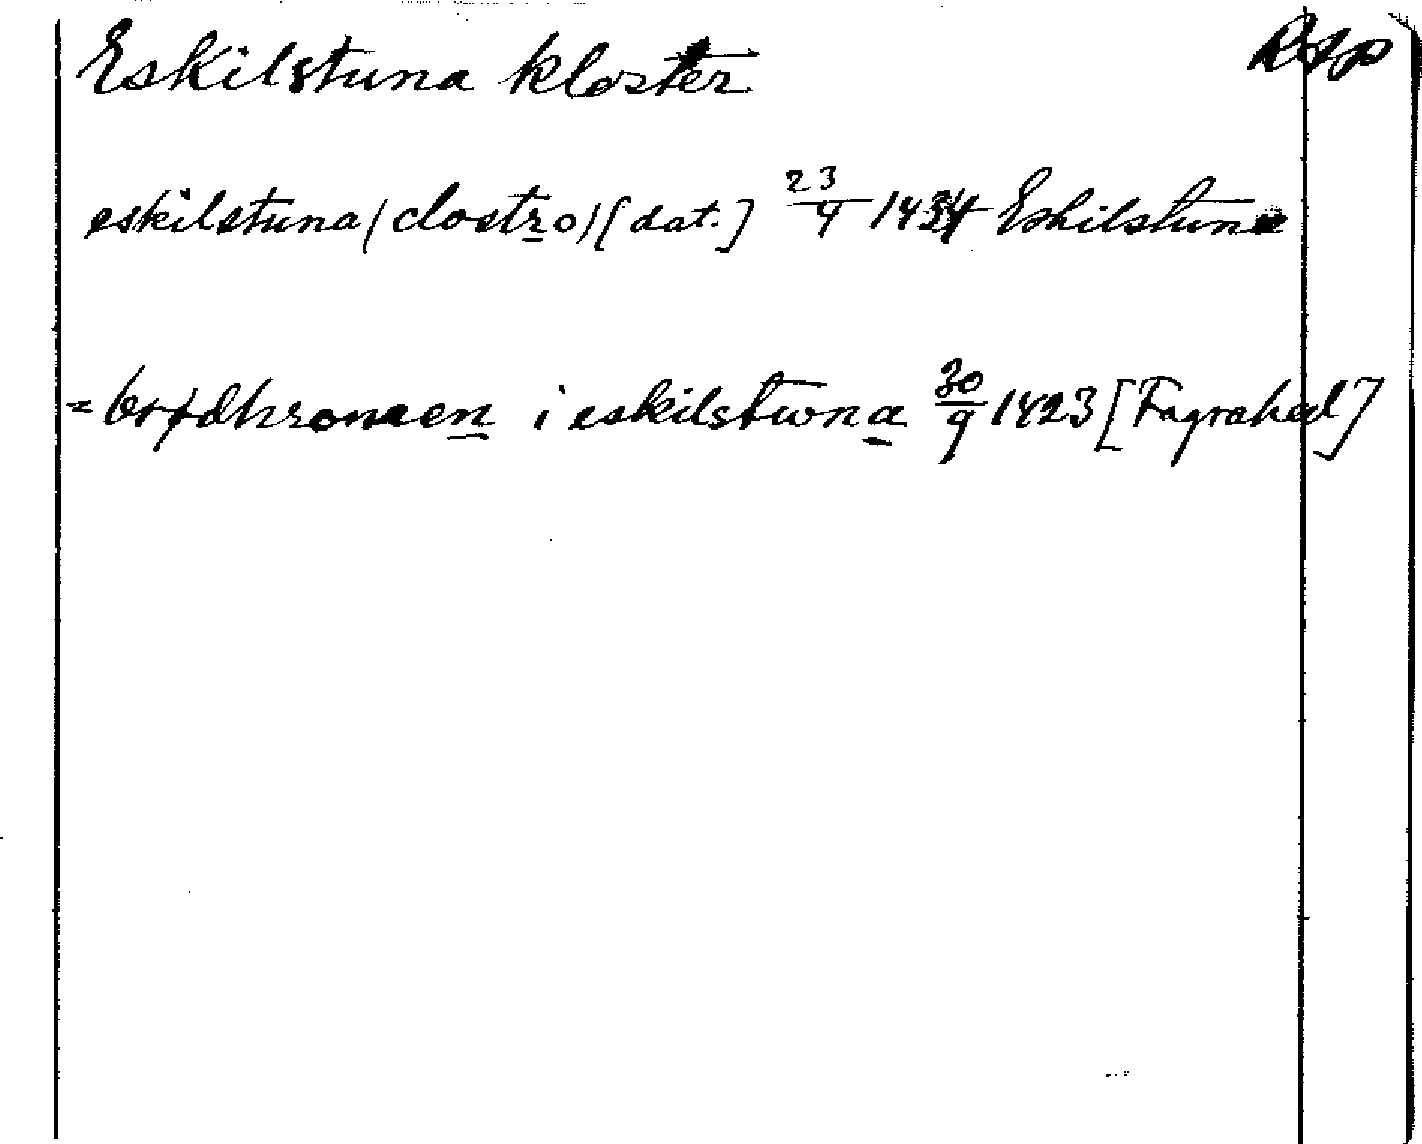 Eskilstuna kloster Rsp
eskilstuna (clostro) [dat.] 23/9 1434 Eskilstuna
= brødhromen i eskilstwna 30/9 1423 [Fagrahed]